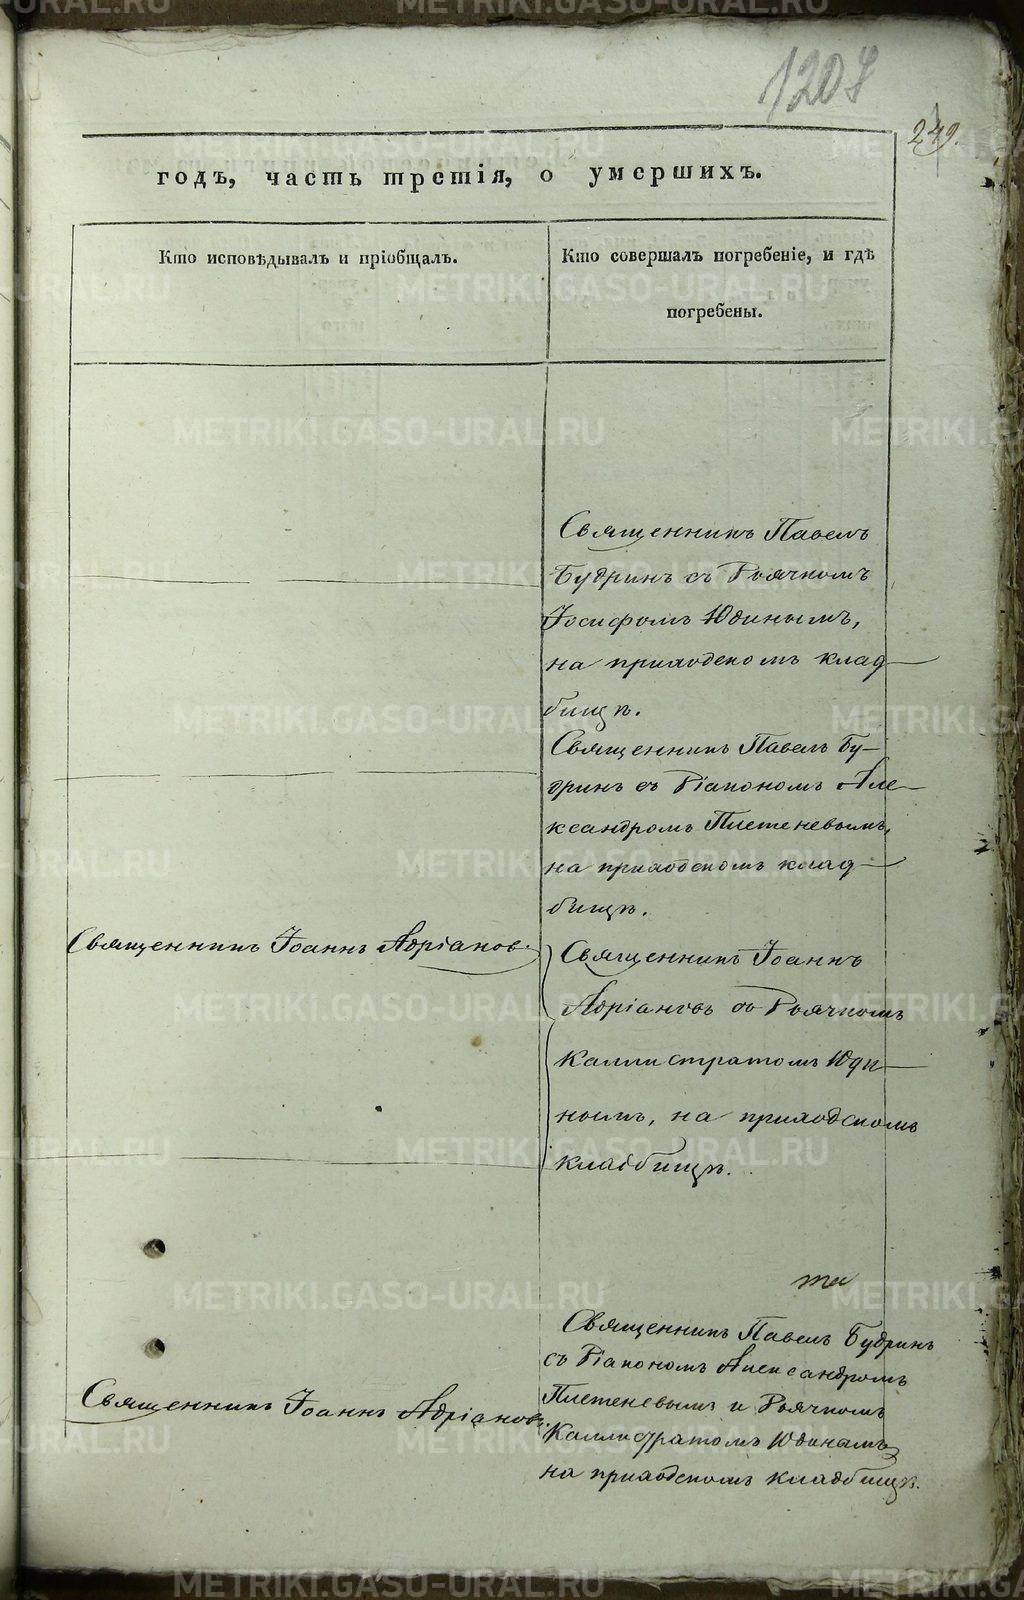 1208
249.
годъ, часть третія, о умершихъ.
Кто исповѣдывалъ и пріобщалъ.
Кто совершалъ погребеніе, и гдѣ
погребены.
Священникъ Павелъ
Будринъ съ Дьячкомъ
Іосифомъ Юдинымъ,
на приходскомъ клад-
бищѣ.
Священникъ Павелъ Бу-
дринъ съ Діакономъ Але-
ксандромъ Плетеневымъ,
на приходскомъ клад-
бищѣ.
Священникъ Іоаннъ Адріанов.
Священникъ Іоаннъ
Адріановъ съ Дьячкомъ
Каллистратомъ Юди-
нымъ, на приходскомъ
кладбищѣ.
Священникъ Іоаннъ Адріановъ.
Священникъ Павелъ Будринъ
съ Діакономъ Александромъ
Плетеневымъ и Дьячкомъ
Каллистратомъ Юдинымъ
на приходскомъ кладбищѣ.
METRIKI.GASO-URAL.RU